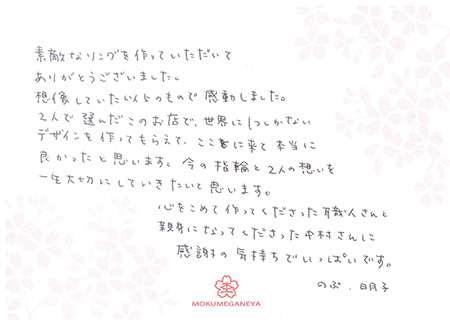 素敵なリングを作っていただいて
ありがとうございました。
想像していた以上のもので感動しました。
2人で選んだこのお店で、世界に1つしかない
デザインを作ってもらえて、ここに来て本当に
良かったと思います。今の指輪と2人の想いを
一生大切にしていきたいと思います。
心をこめて作ってくださった職人さんと
親身になってくださった中村さんに
感謝の気持ちでいっぱいです。
のぶ、明子
MOKUMEGANEYA